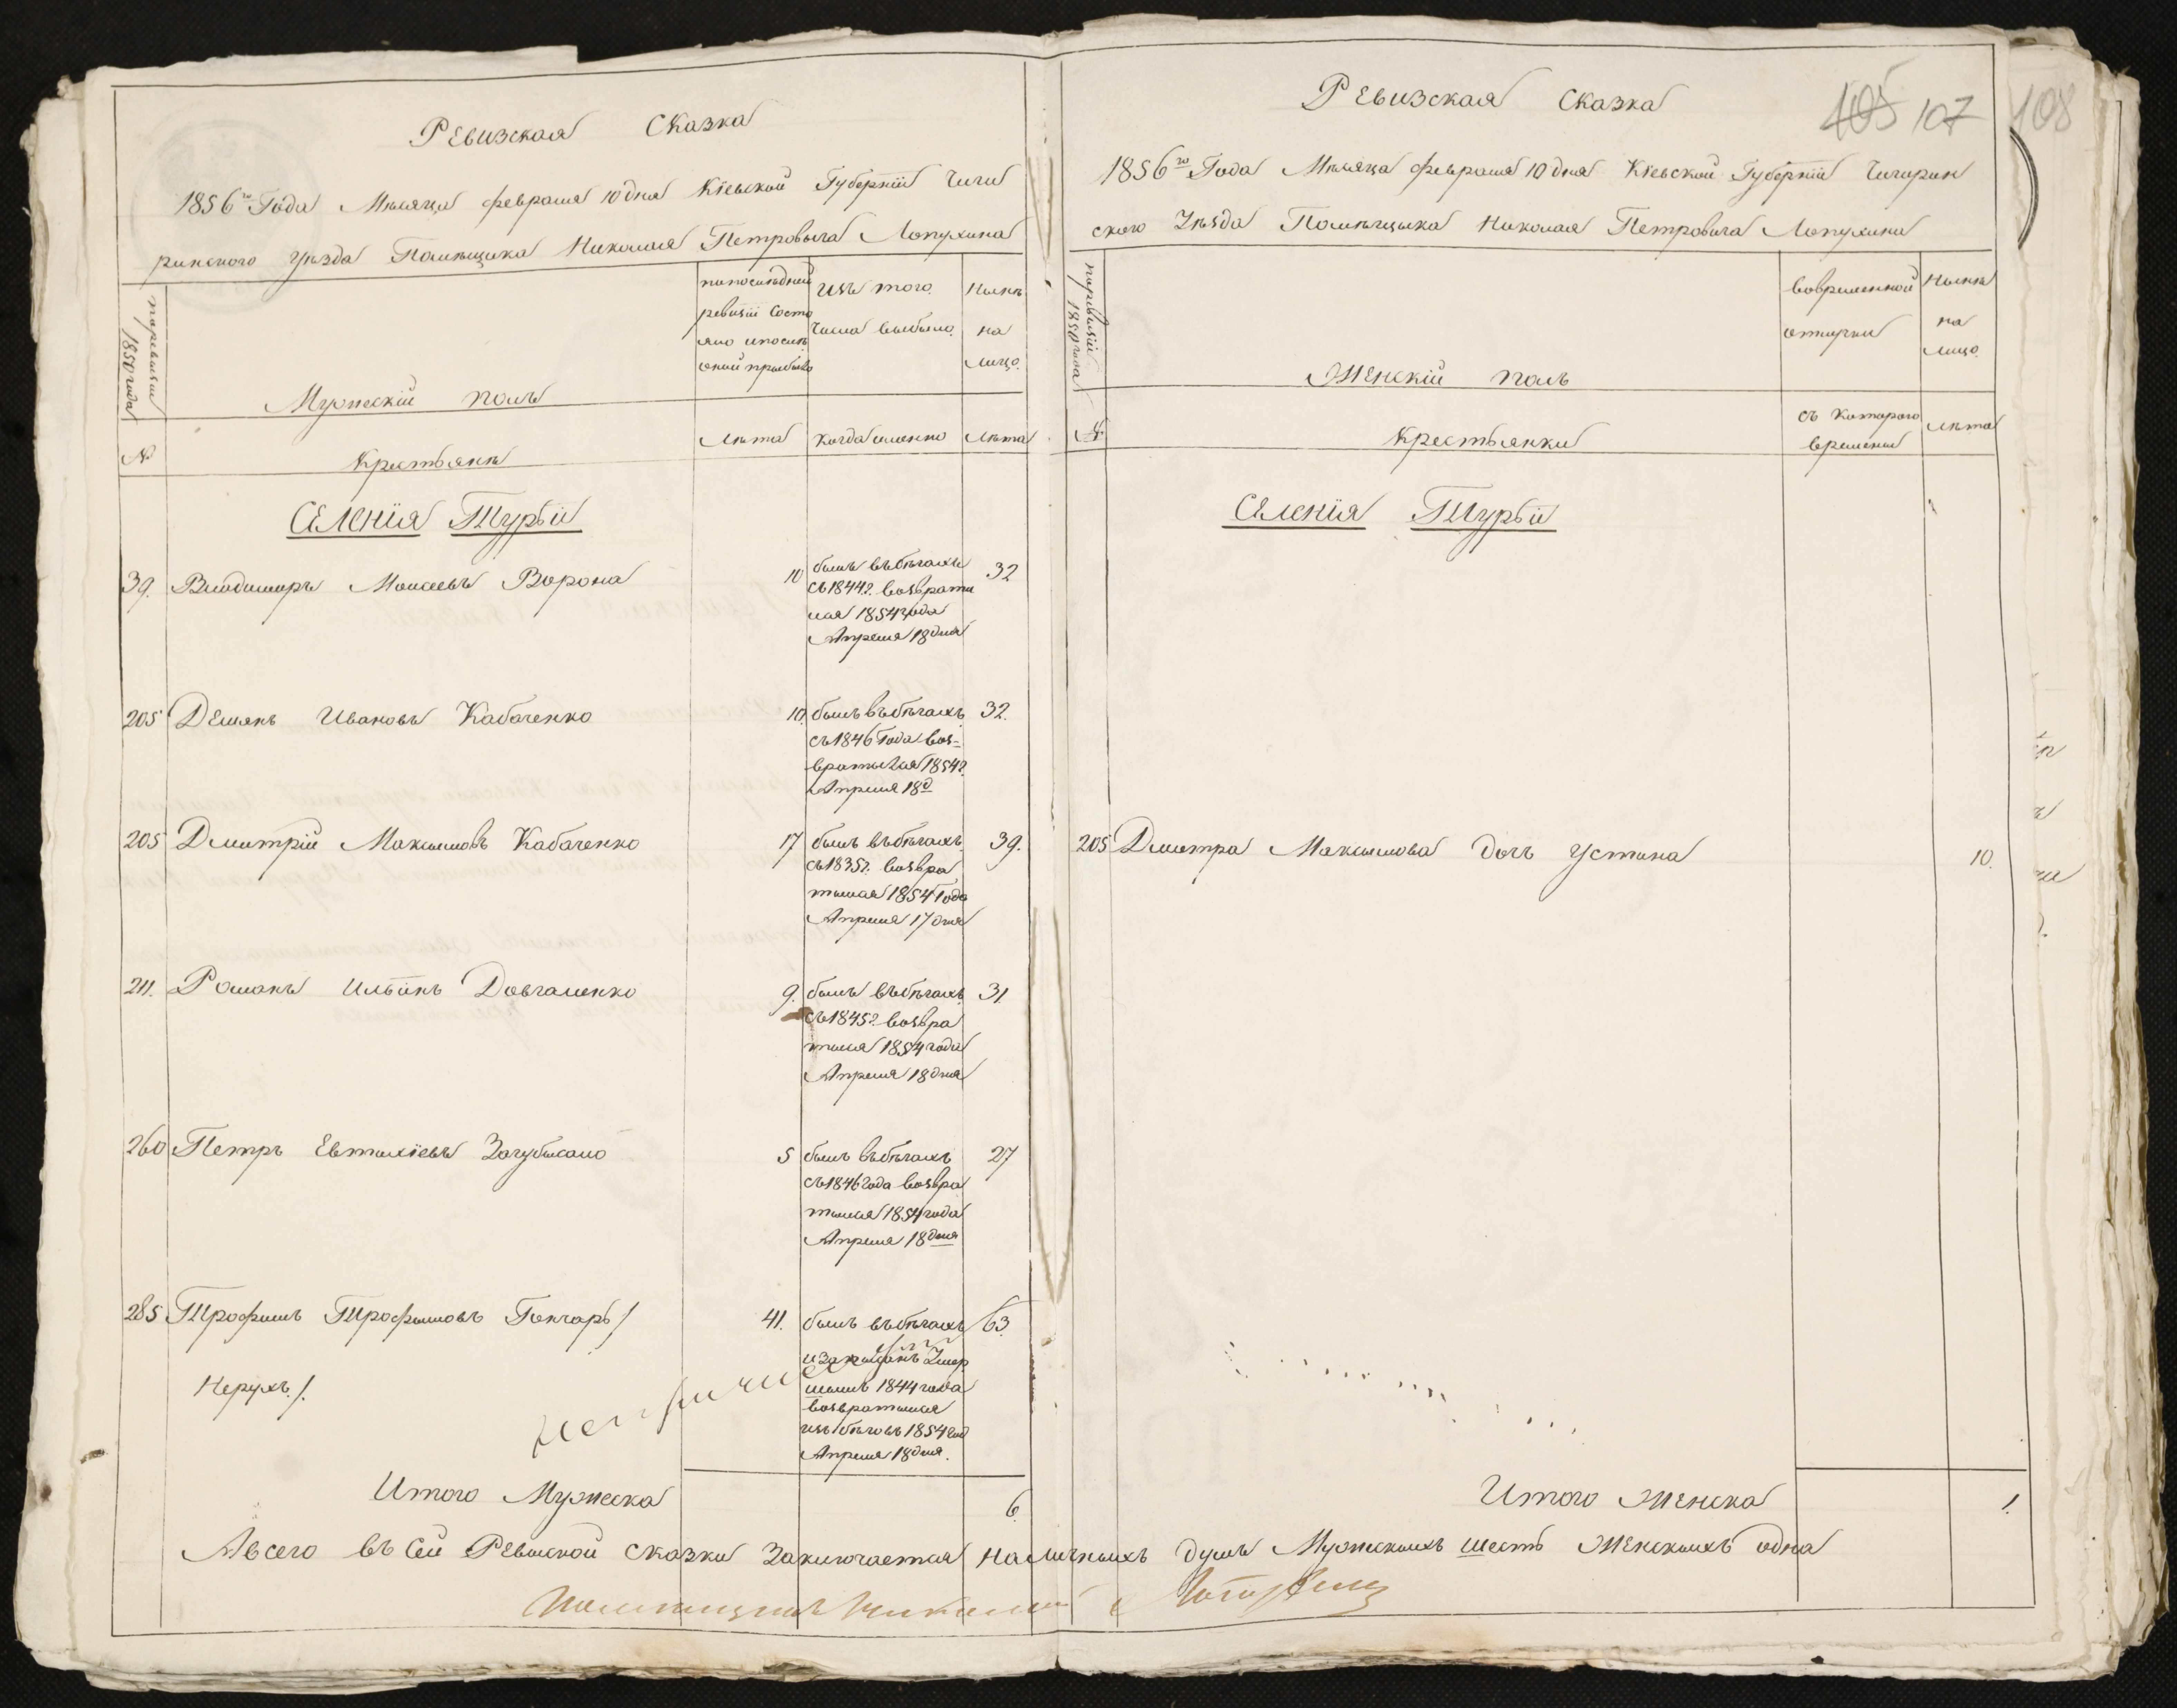 Ревизская Сказка
1856го Года Мѣсяца февраля 10 дня Кіевской Губерніи Чиги
ринского уѣзда Помѣщика Николая Петровича Лопухина
по ревизіи 1850 года
Мужескій полъ
по послѣдней
ревизіи состо
яло и послѣ
оной прибыло
Изъ того
числа выбыло
Нынѣ
на
лицо.
№
Крестьянѣ
Лѣта
Когда именно
Лѣта
Селенія Турьи
39. Владимиръ Моисеевъ Ворона 10 былъ въ бѣгахъ 32
съ 1844г. возврати
лся 1854 года
Апреля 18 дня
205 Демянъ Ивановъ Кабаченко 10. былъ въ бѣгахъ 32.
съ 1846 Года воз-
вратился 1854г.
Апреля 18 д
205 Дмитрій Максимовъ Кабаченко 17 былъ въ бѣгахъ 39.
съ 1835г. возвра
тился 1854 Года
Апреля 17 дня
211. Романъ Ильинъ Довгаленко 9. былъ въ бѣгахъ 31
съ 1845г. возвра
тился 1854 года
Апреля 18 дня
260 Петръ Евтихіевъ Загубисало 5 былъ въ бѣгахъ 27
съ 1846 года возвра
тился 1854 года
Апреля 18 дня
285 Трофимъ Трофимовъ Гончаръ /: 41. былъ въ бѣгахъ 63.
и записанъ Умер
шимъ 1844 года
Нерухъ :/.
возвратился
изъ бѣговъ 1854 год
Апреля 18 дня.
Итого Мужеска 6.
Ревизская Сказка
105 107
108
1856го Года Мѣсяца февраля 10 дня Кіевской Губерніи Чигирин
ского Уѣзда Помѣщика Николая Петровича Лопухина
по ревизіи 1850 года
Женскій полъ
Во временной
отлучки
Нынѣ
на
лицо.
№
Крестьянки
съ которого
времени
Лѣта
Селенія Турьи
205 Дмитра Максимова дочь Устина 10.
Итого Женска 1.
А всего въ сей Ревизской сказки Заключается наличныхъ душъ Мужескихъ шесть Женскихъ одна
Помѣщикъ Николай Лопухинъ